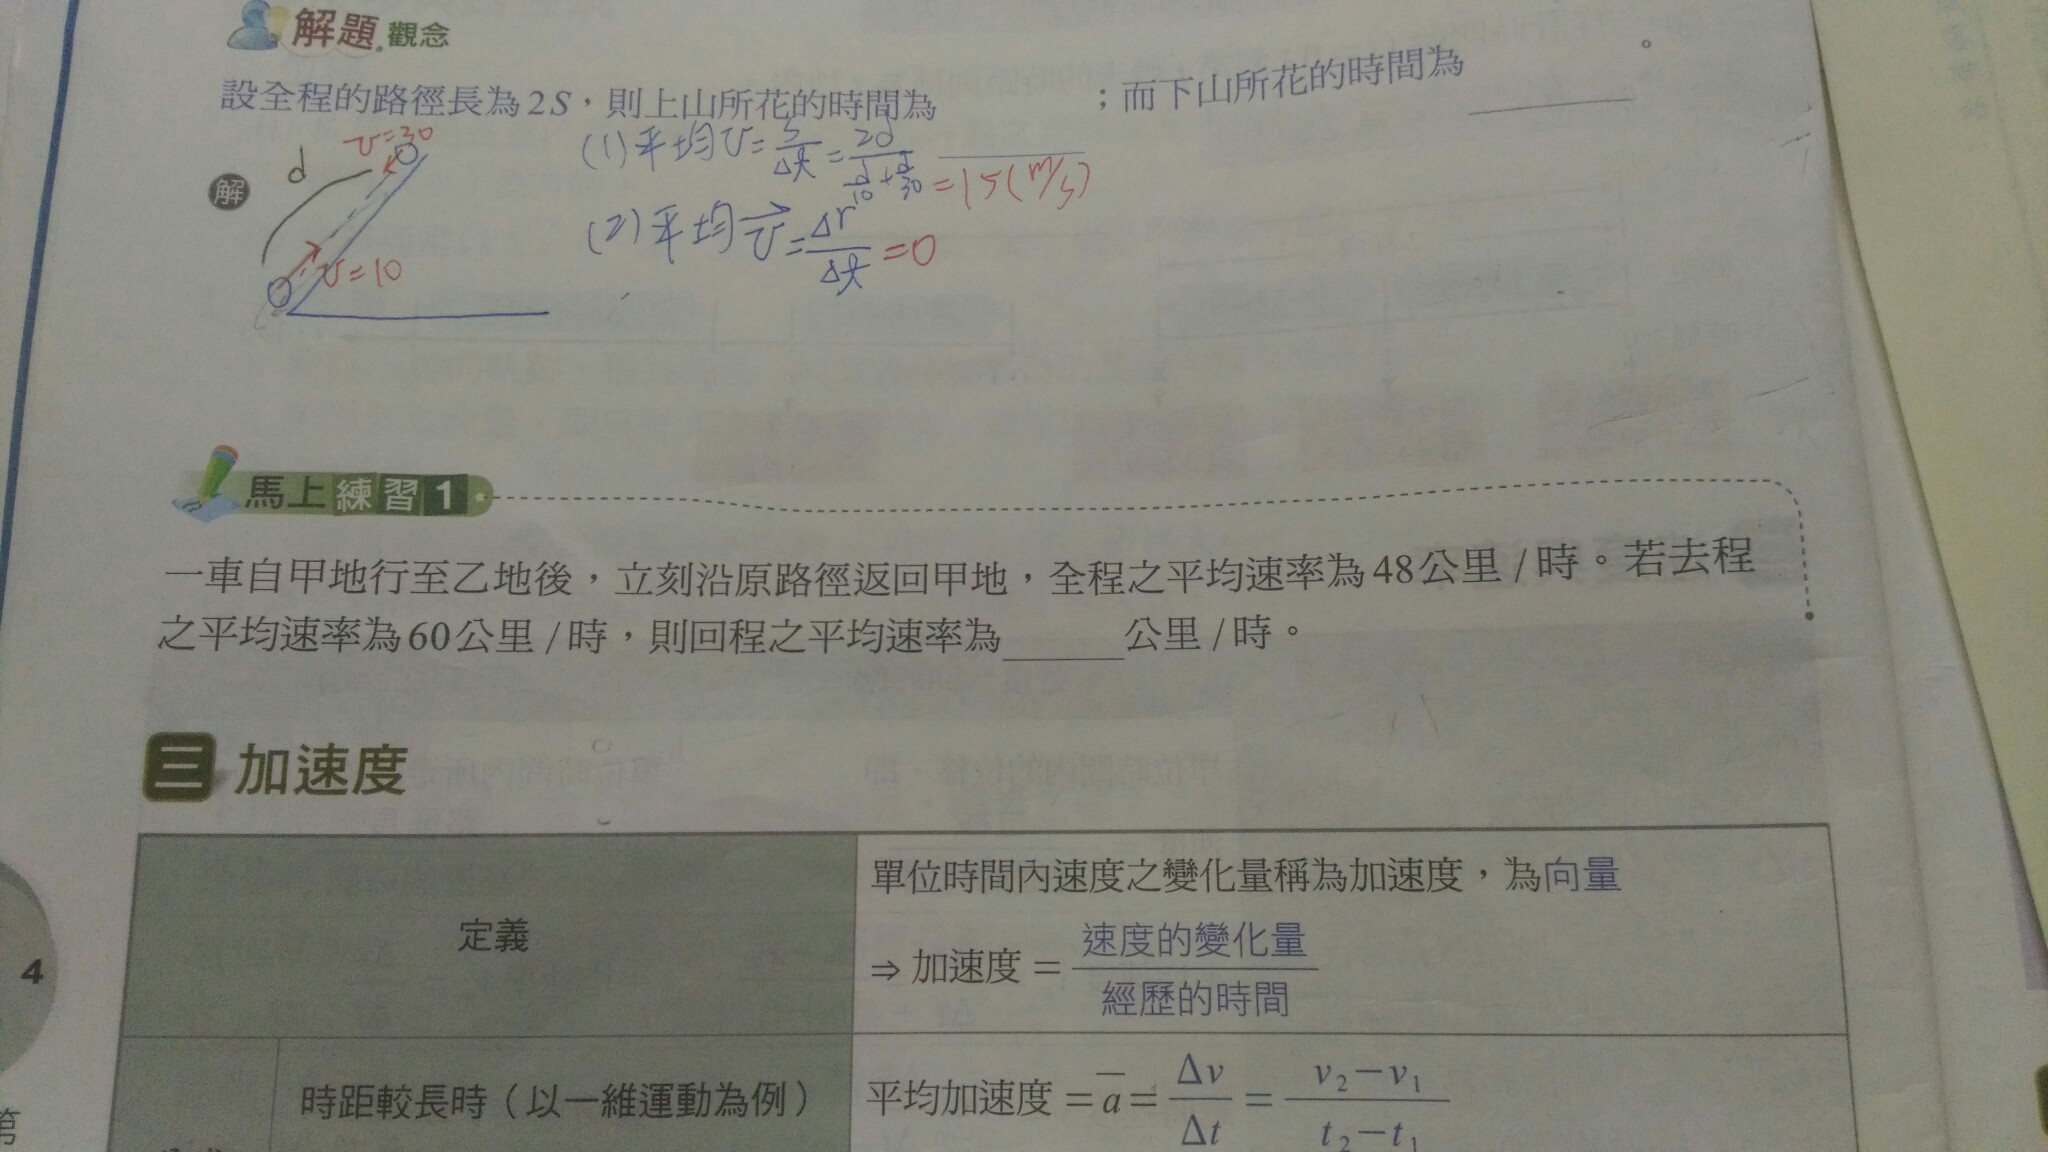 解題觀念
設全程的路徑長為2S，則上山所花的時間為
；而下山所花的時間為
。
解
d
v=30
v=10
(1)平均v=S/Δt=2d/(d/10+d/30)=15(m/s)
(2)平均v⃗=Δr/Δt=0
馬上練習1
一車自甲地行至乙地後，立刻沿原路徑返回甲地，全程之平均速率為48公里/時。若去程
之平均速率為60公里/時，則回程之平均速率為______公里/時。
三 加速度
定義
單位時間內速度之變化量稱為加速度，為向量
⇒加速度＝速度的變化量/經歷的時間
4
第
時距較長時（以一維運動為例）
平均加速度＝a̅＝Δv/Δt＝(v₂−v₁)/(t₂−t₁)